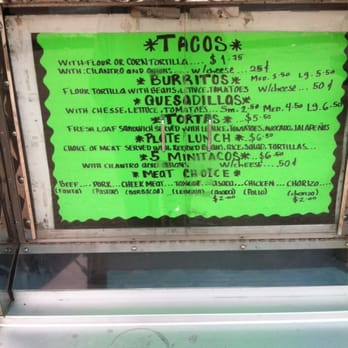 *TACOS*
WITH FLOUR OR CORN TORTILLA.... $1.25
WITH: CILANTRO AND ONIONS.... W/CHEESE...25¢
*BURRITOS* MED. 3.50 LG. 5.50
FLOUR TORTILLA WITH BEANS, LETTUCE, TOMATOES W/CHEESE... 50¢
*QUESADILLAS*
WITH CHESSE, LETTUCE, TOMATOES... SM. 2.50 MED. 4.50 LG. 6.50
*TORTAS* ...$5.50
FRESH LOAF SANDWICH SERVED WITH LETTUCE, TOMATOES, AVOCADO, JALAPENOS
*PLATE LUNCH*...$6.50
CHOICE OF MEAT SERVED W/ REFRIED BEANS, RICE, SALAD, TORTILLAS.
*5 MINITACOS*...$6.50
WITH CILANTRO AND ONIONS W/CHEESE...50¢
*MEAT CHOICE*
BEEF.... PORK.. CHEEK MEAT... TONGUE... ASADA... CHICKEN... CHORIZO...
(FAJITA) (PASTOR) (BARBACOA) (LENGUA) (POLLO)
$2.00 $2.00